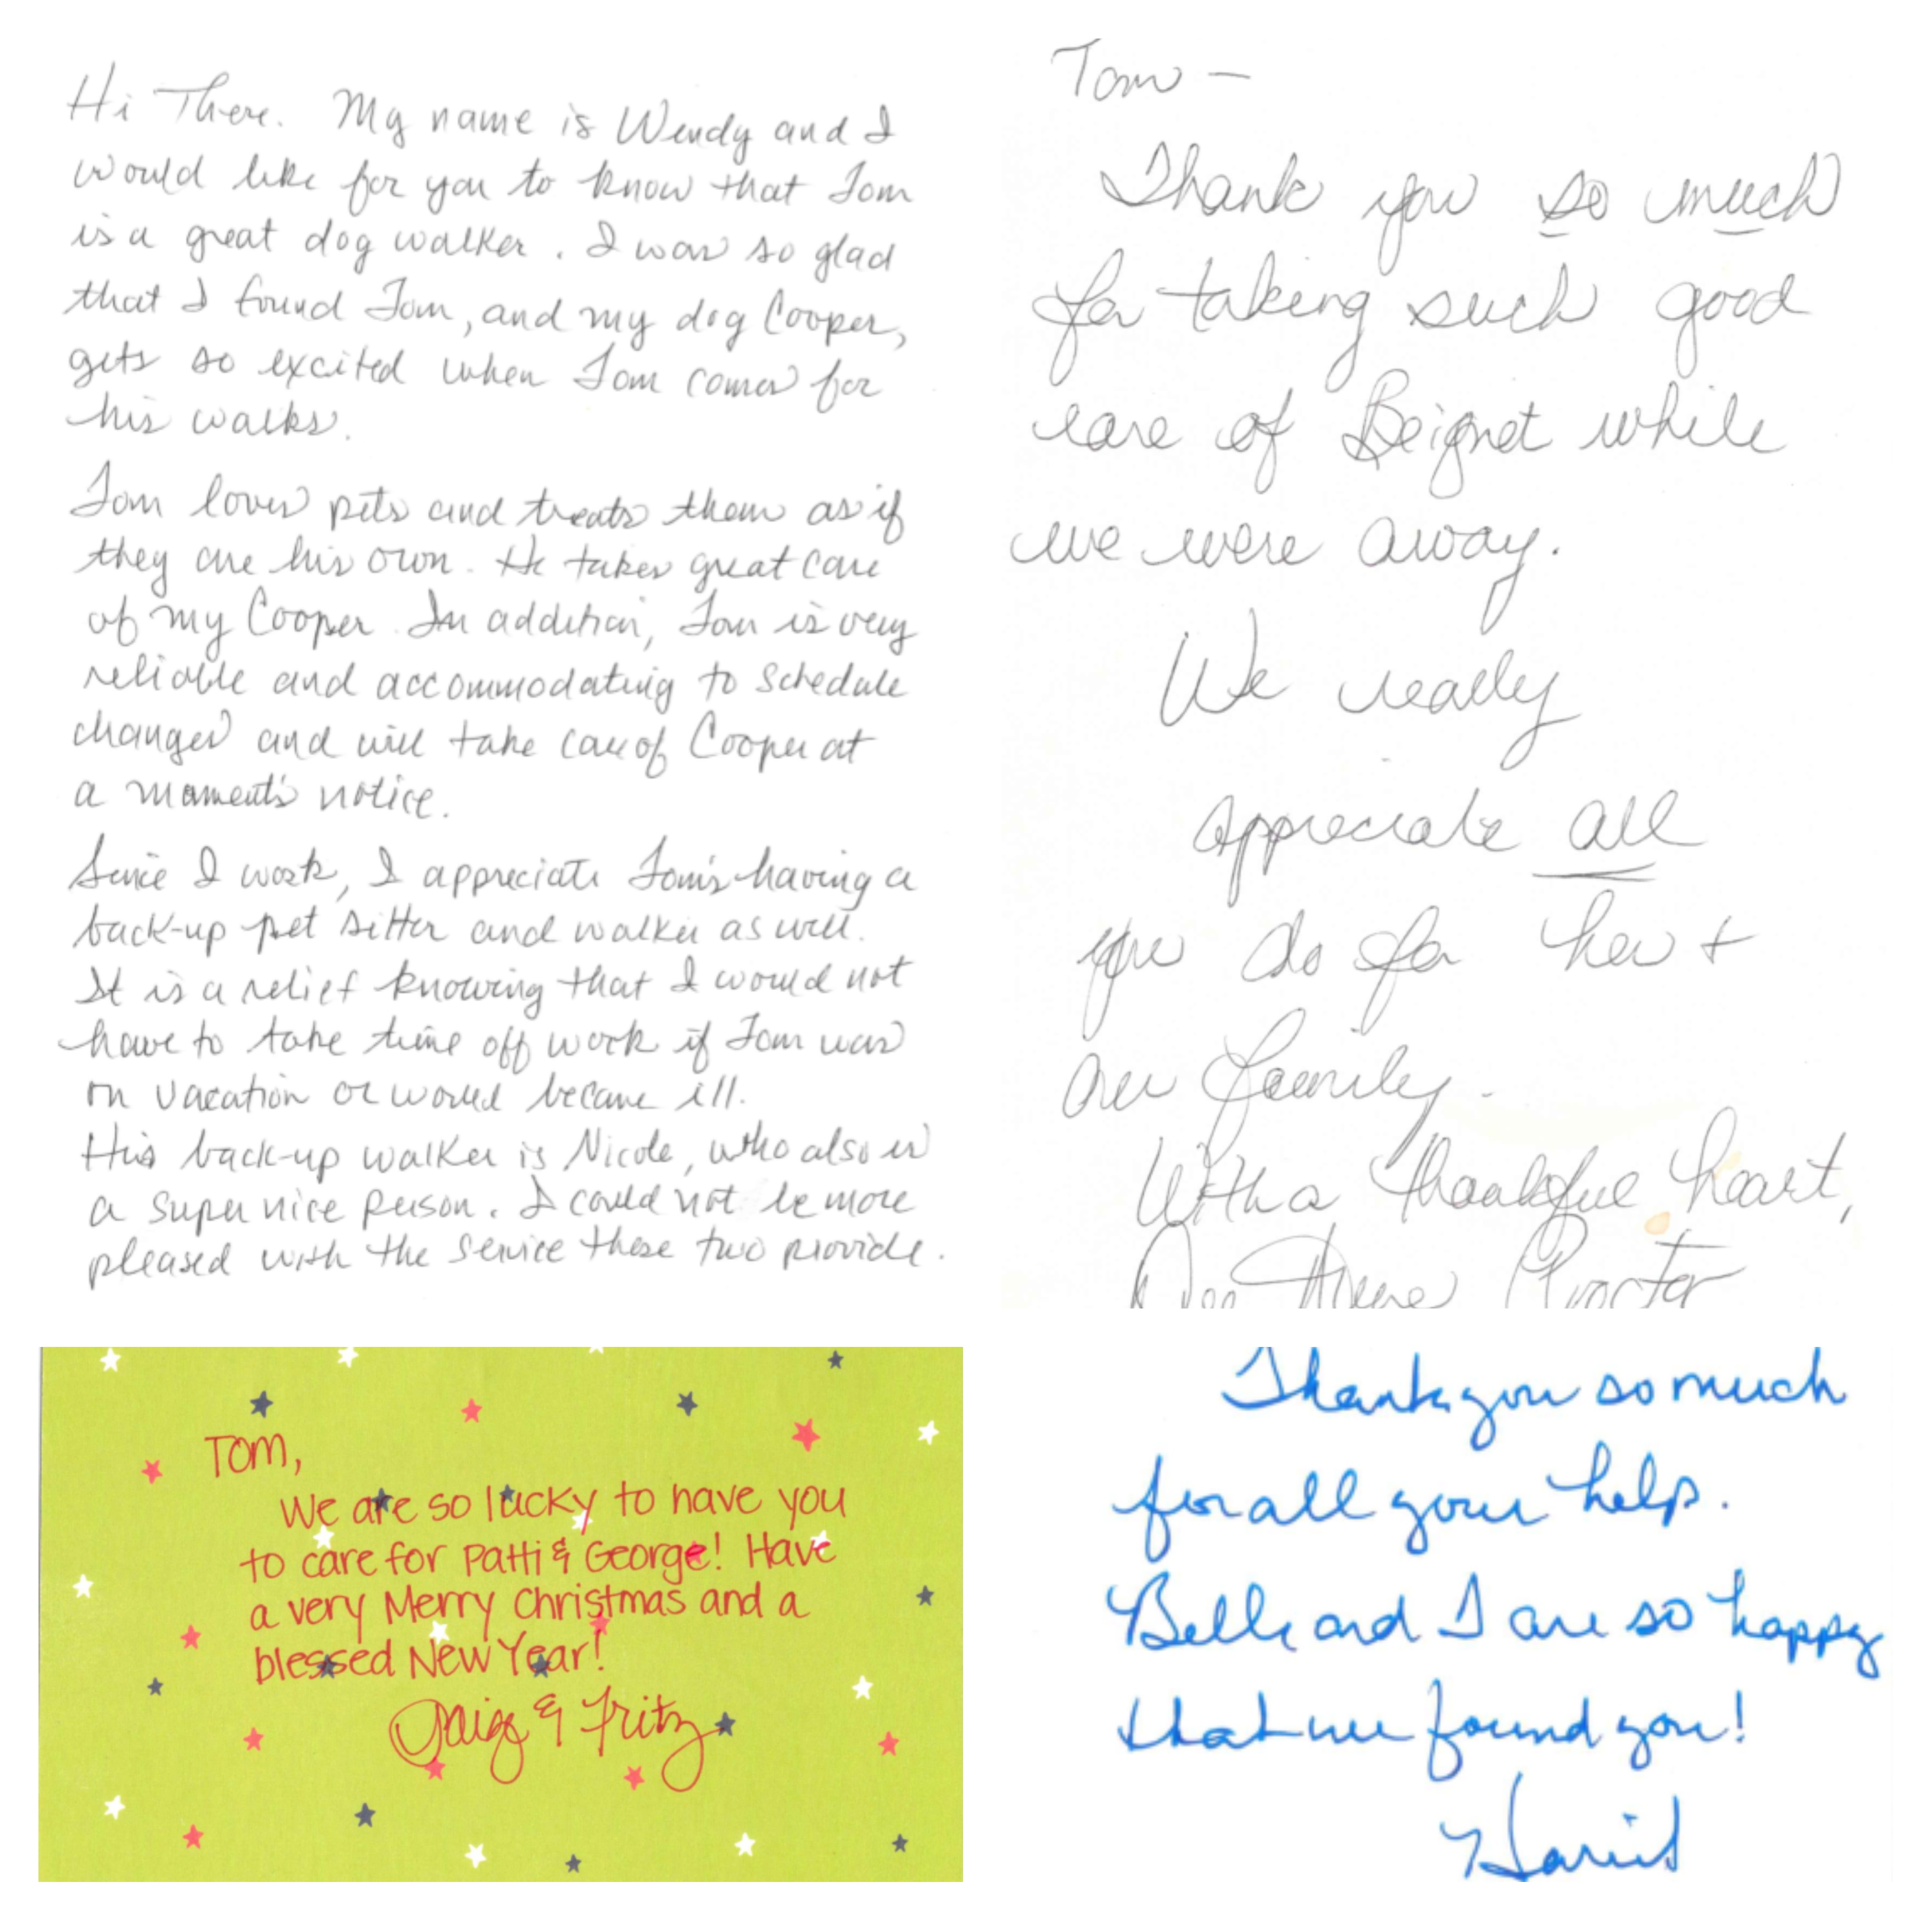 Hi There. My name is Wendy and I
would like for you to know that Tom
is a great dog walker. I was so glad
that I found Tom, and my dog Cooper,
gets so excited when Tom comes for
his walks.
Tom loves pets and treats them as if
they are his own. He takes great care
of my Cooper. In addition, Tom is very
reliable and accommodating to schedule
changes and will take care of Cooper at
a moment's notice.
Since I work, I appreciate Tom's having a
back-up pet sitter and walker as well.
It is a relief knowing that I would not
have to take time off work if Tom was
on vacation or would become ill.
His back-up walker is Nicole, who also is
a super nice person. I could not be more
pleased with the service these two provide.
Tom -
Thank you so much
for taking such good
care of Beignet while
we were away.
We really
appreciate all
you do for her +
our family.
With a thankful heart,
Proctor
Tom,
We are so lucky to have you
to care for Patti & George! Have
a very Merry Christmas and a
blessed New Year!
& Fritz
Thank you so much
for all your help.
Belle and I are so happy
that we found you!